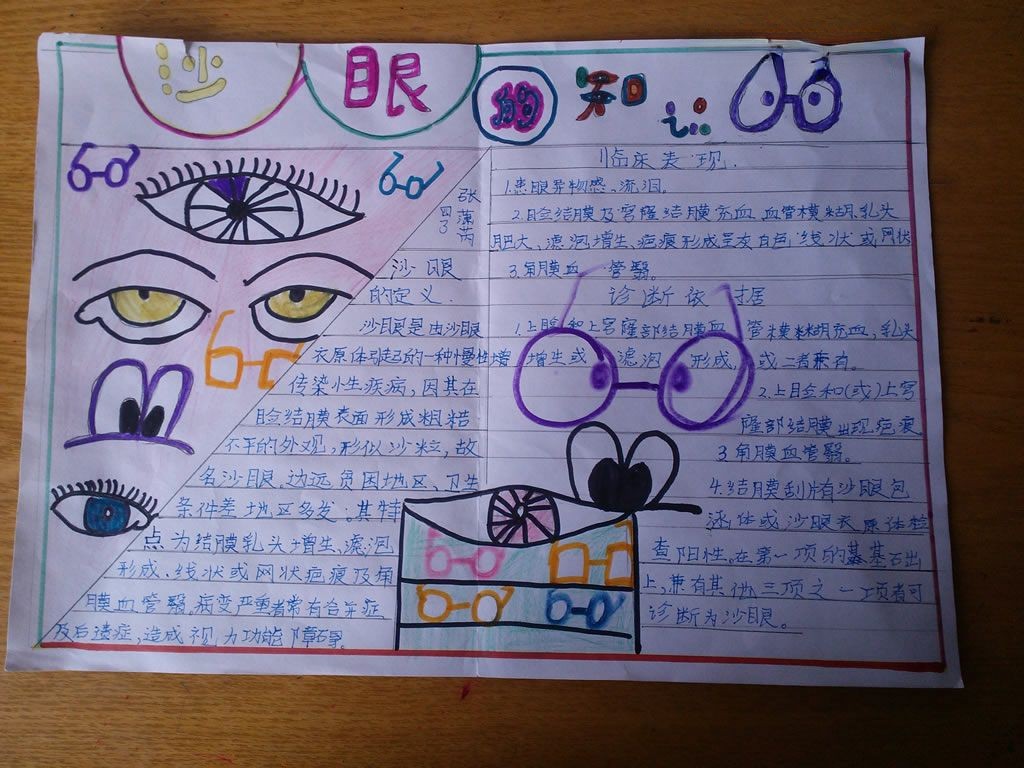 沙眼的知识
张潇芮
四3
沙眼
的定义.
沙眼是由沙眼
衣原体引起的一种慢性增
传染性疾病，因其在
睑结膜表面形成粗糙
不平的外观，形似沙粒，故
名沙眼，边远贫困地区、卫生
条件差地区多发。其特
点为结膜乳头增生、滤泡
形成、线状或网状疤痕及角
膜血管翳，病变严重者常有合并症
及后遗症，造成视力功能障碍。
临床表现.
1.患眼异物感、流泪。
2.睑结膜及穹隆结膜充血、血管模糊、乳头
肥大、滤泡增生、疤痕形成呈灰白色线状或网状
3.角膜血管翳。
诊断依据
1.上睑和上穹隆部结膜血管模糊充血，乳头
增生或滤泡形成，或二者兼有。
2.上睑和(或)上穹
隆部结膜出现疤痕
3.角膜血管翳。
4.结膜刮片有沙眼包
涵体或沙眼衣原体检
查阳性。在第一项的基基石出
上，兼有其他三项之一项者可
诊断为沙眼。